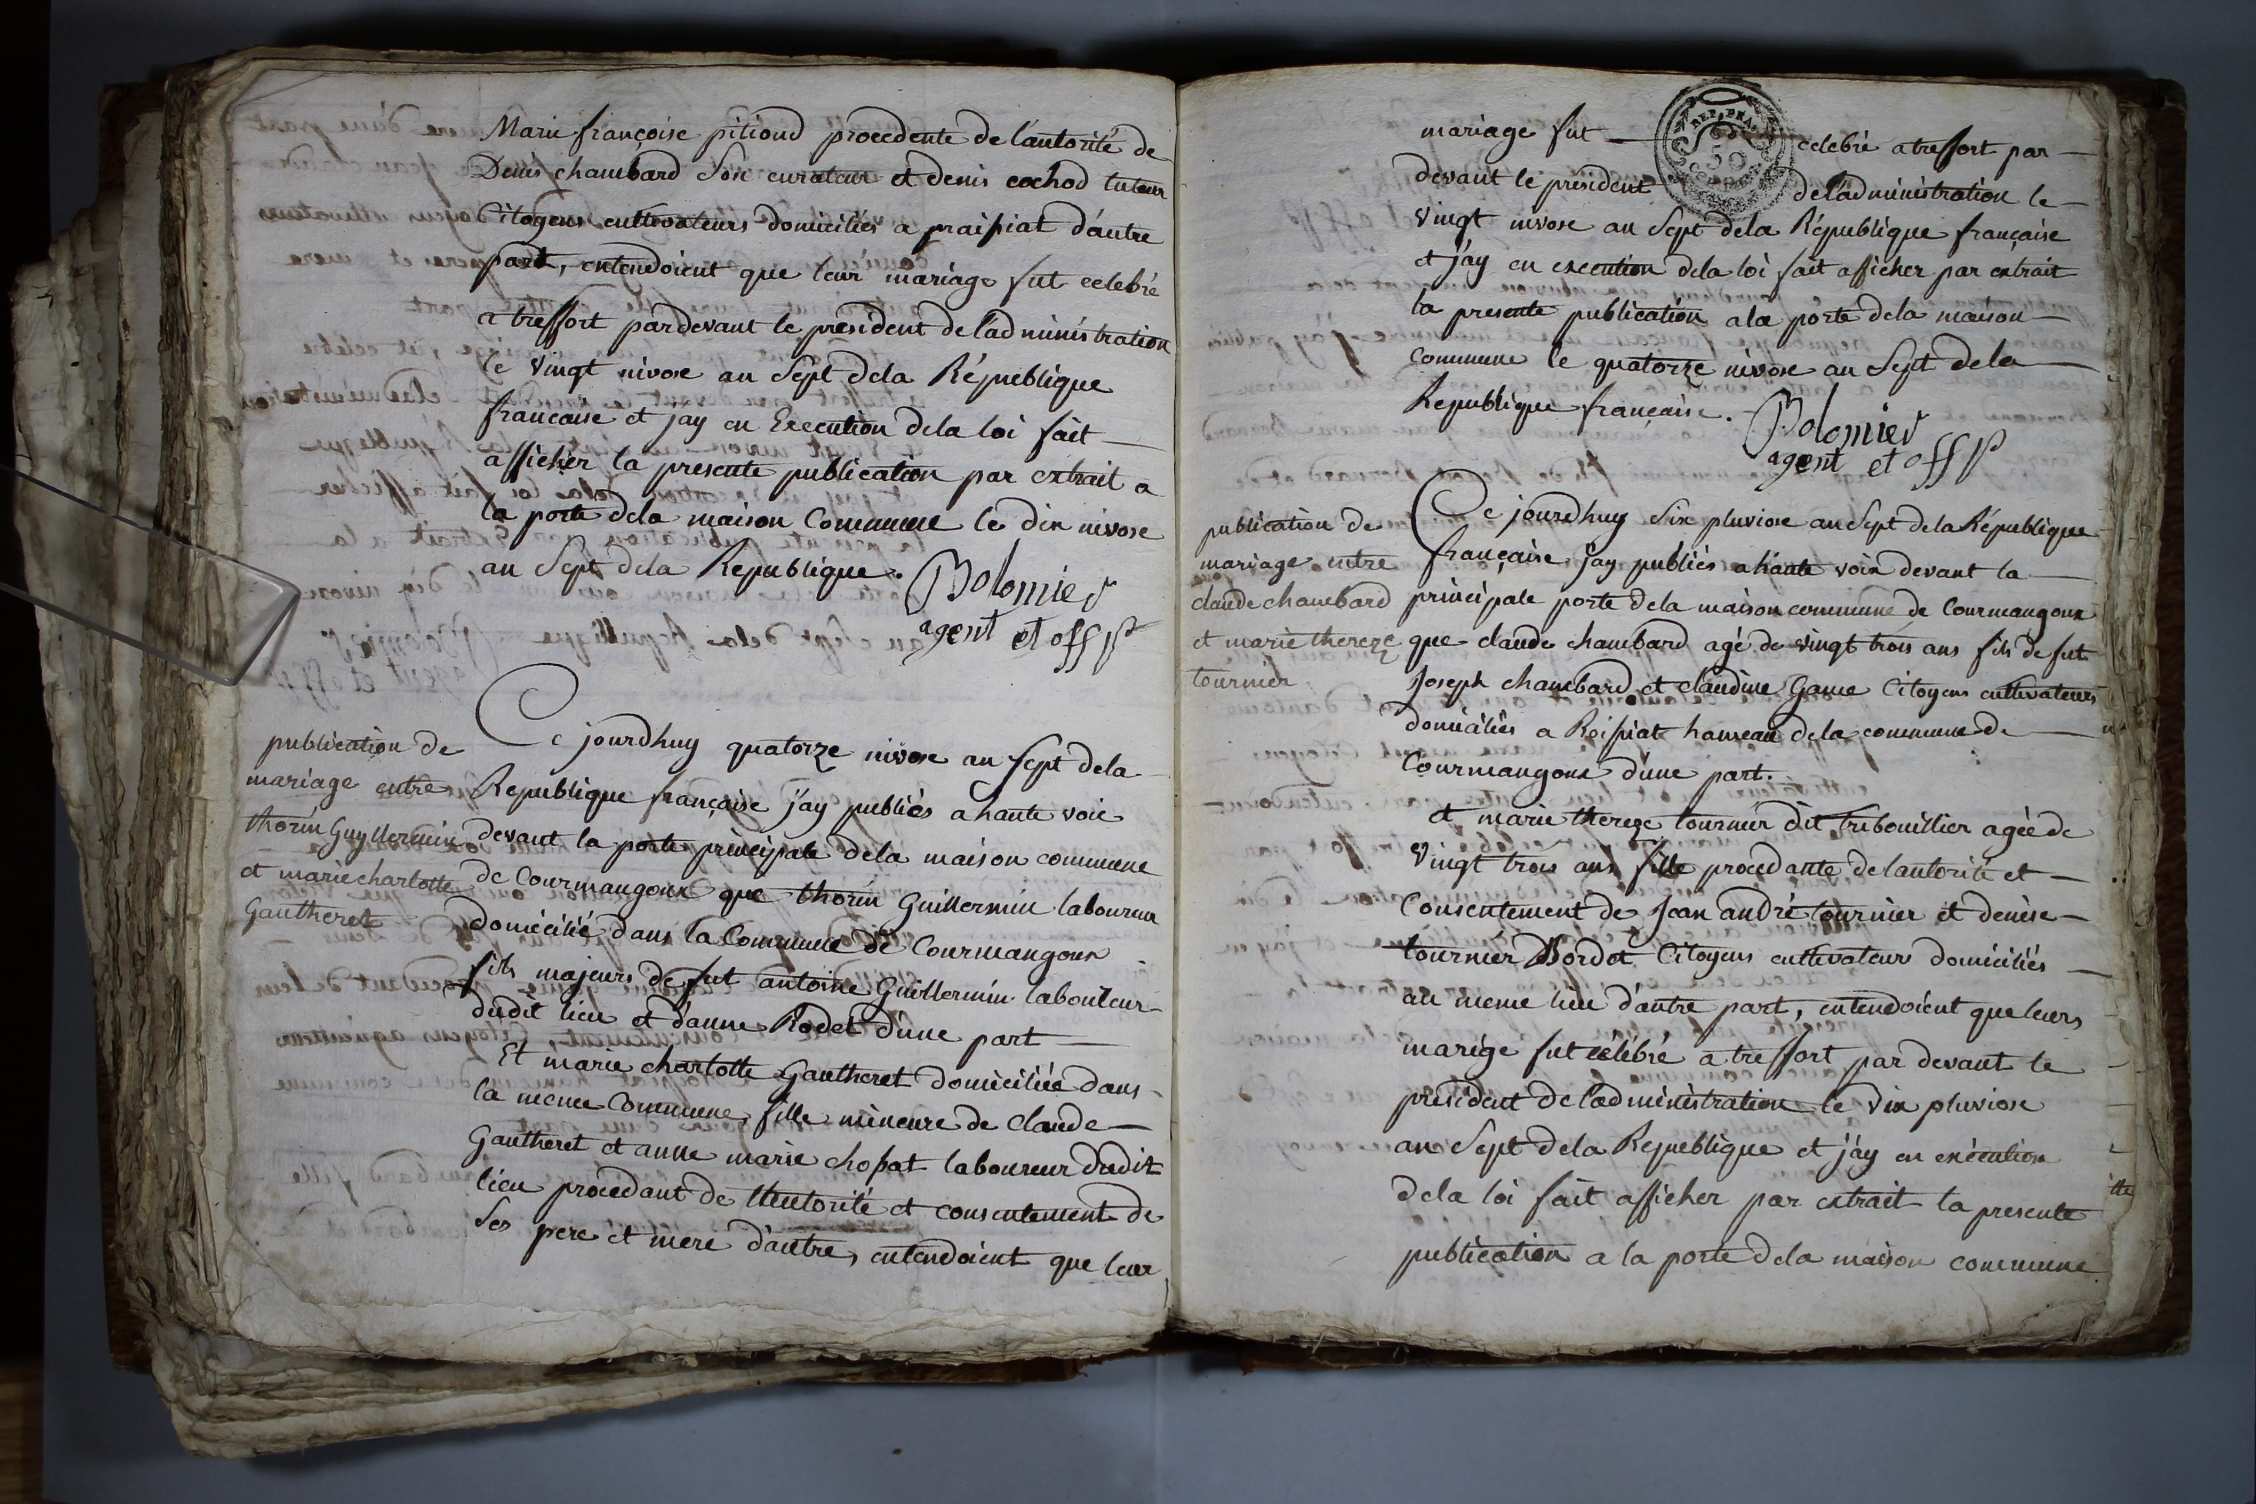 Marie françoise pitioud procedente de l'autorité de
Denis chambard Son curateur et denis cochod tuteur
Citoyens cultivateurs domiciliés a praissiat d'autre
part, entendoient que leur mariage fut celebré
a treffort pardevant le président de l'administration
le vingt nivose an Sept dela République
francaise et jay en Execution dela loi fait
afficher la presente publication par extrait a
la porte dela maison Commune le dix nivose
an Sept dela Republique.
Bolomier
agent et off p
publication de
mariage entre
thorin Guyllermin
et marie charlotte
Gautheret
Ce jourdhuy quatorze nivose an Sept dela
Republique française j'ay publiés a haute voie
devant la porte principale dela maison commune
de Courmangoux que thorin Guillermin laboureur
domicilié dans la Commune de Courmangoux
fils majeurs de fut antoine Guillermin laboureur
dudit lieu et d'anne Rodet d'une part
Et marie charlotte Gautheret domiciliée dans
la meme Commune, fille mineure de claude
Gautheret et anne marie chossat laboureur dudit
lieu procedant de l'Autorité et consentement de
Ses pere et mere d'autre, entendoient que leur
mariage fut celebré a treffort par
REP. FRA.
50
devant le president de l'administration le
vingt nivose an Sept dela République française
et j'ay en execution dela loi fait afficher par extrait
la presente publication a la porte dela maison
commune le quatorze nivose an Sept dela
Republique française.
Bolomier
agent et off p
publication de
mariage entre
claude chambard
et marie thereze
tournier
Ce jourdhuy Six pluviose an Sept dela République
française j'ay publiés a haute voix devant la
principale porte dela maison commune de Courmangoux
que claude chambard agé de vingt trois ans fils de fut
Joseph chambard et claudine Game Citoyens cultivateurs
domiciliés a Roissiat hameau dela commune de
Courmangoux d'une part.
et marie thereze tournier dit tribouillier agée de
Vingt trois ans fille procedante de l'autorité et
Consentement de Jean andré tournier et denise
tournier Bordot Citoyens cultivateur domiciliés
au meme lieu d'autre part, entendoient que leurs
mariége fut célébré a treffort par devant le
président de l'administration le dix pluviose
an Sept dela Republique et j'ay en exécution
dela loi fait afficher par extrait la presente
publication a la porte dela maison commune